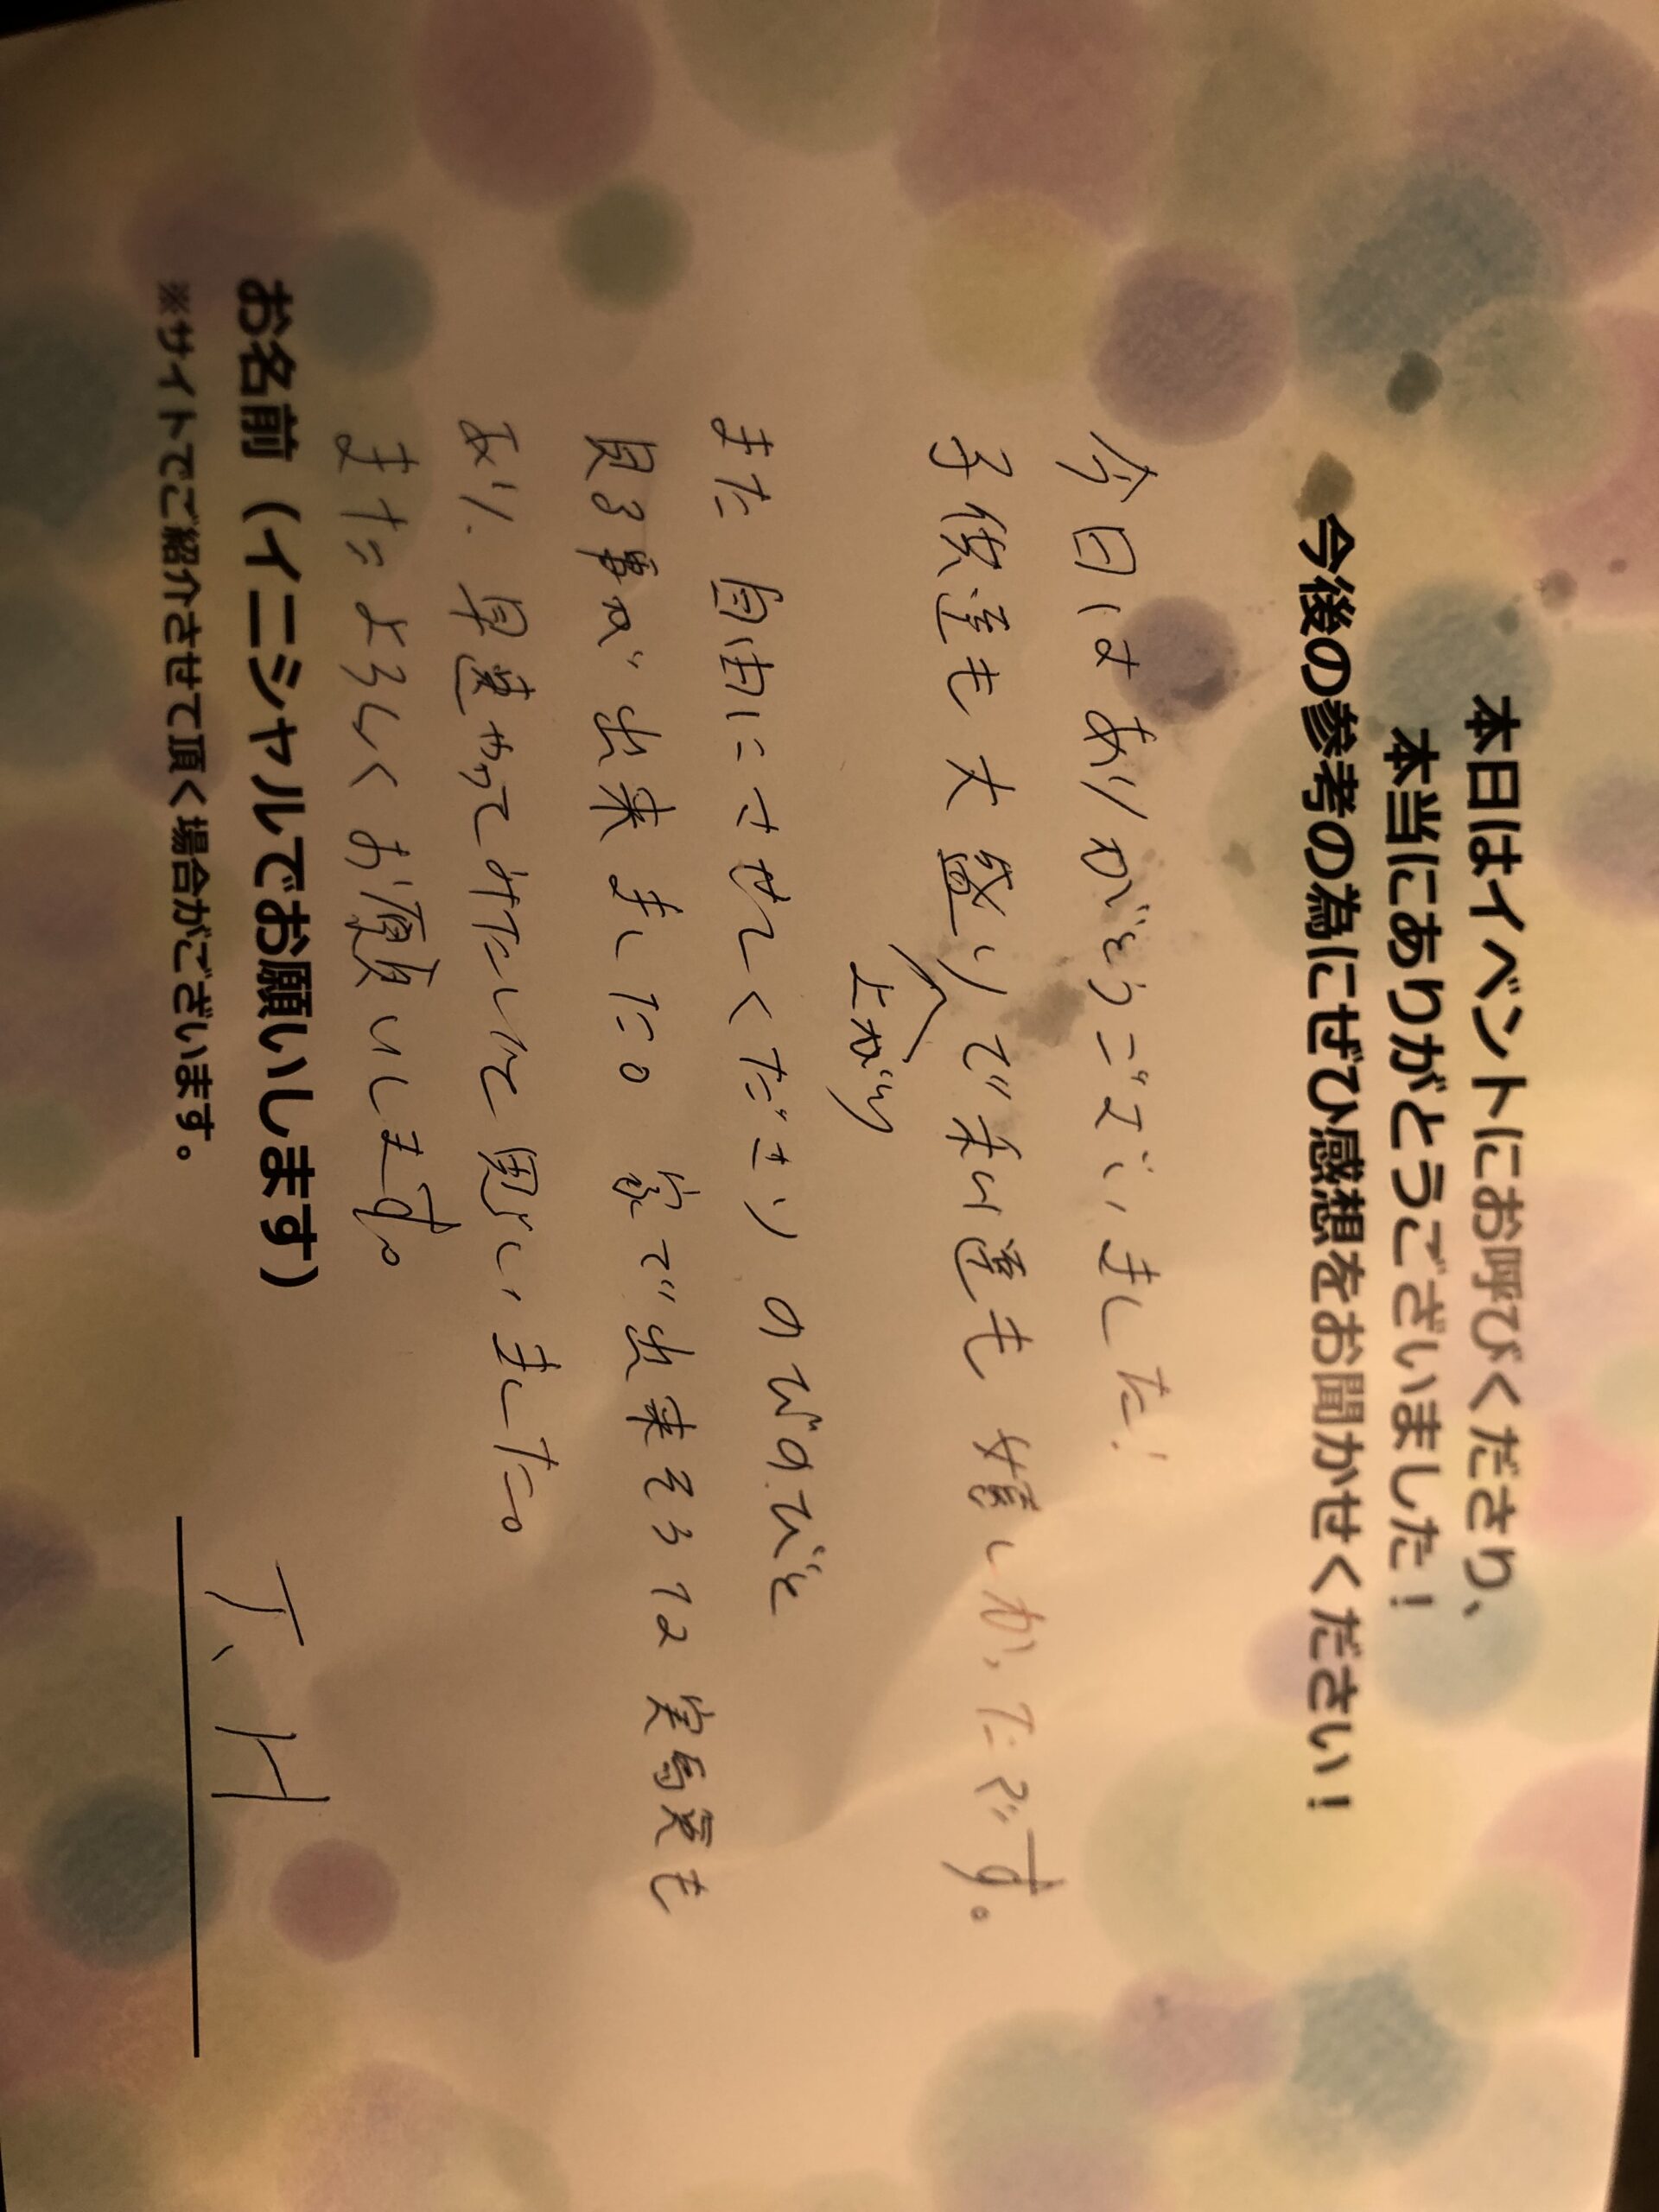 本日はイベントにお呼びくださり、
本当にありがとうございました！
今後の参考の為にぜひ感想をお聞かせください！
今日はありがとうございました!
子供達も大盛りで私達も嬉しかったです。
上がり
また自由にさせてくださりのびのびと
見る事が出来ました。家で出来そうな実験も
あり、早速やってみたいと思いました。
またよろしくお願いします。
お名前（イニシャルでお願いします） T.H
※サイトでご紹介させて頂く場合がございます。